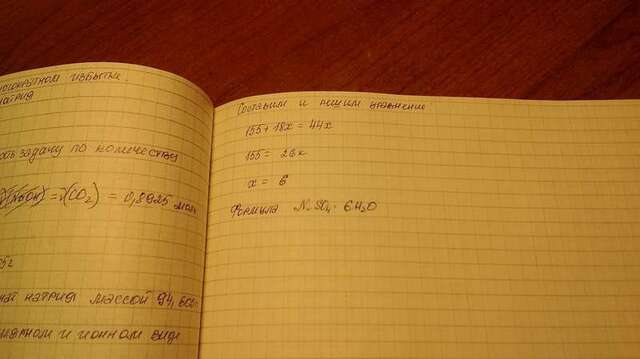 многократном избытке
натрия
ать задачу по количеству
(NaOH) = ν(CO₂) = 0,8925 моль
5г
натрия массой 94,605г
лярном и ионном виде
Составим и решим уравнение
155 + 18x = 44x
155 = 26x
x = 6
Формула NiSO₄ · 6H₂O